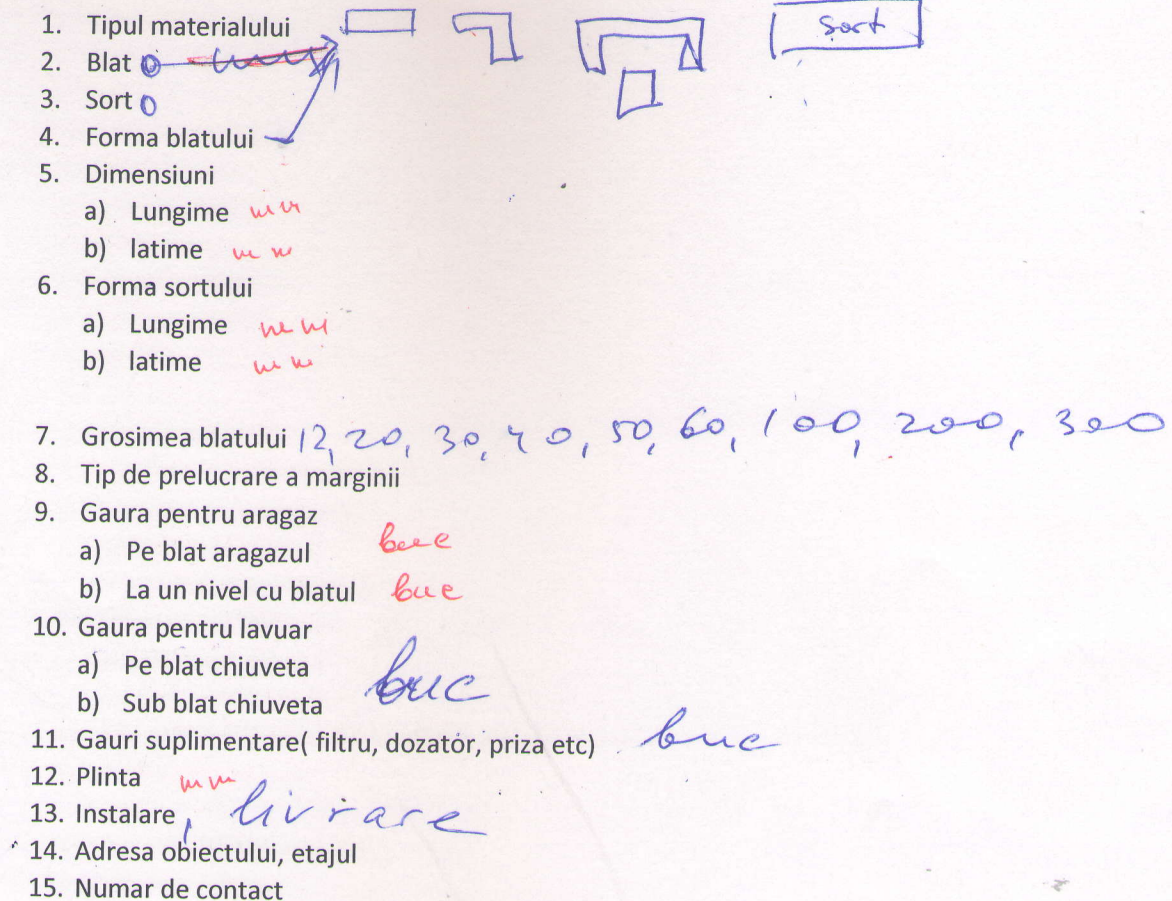 1. Tipul materialului
Sort
2. Blat
3. Sort
4. Forma blatului
5. Dimensiuni
a) Lungime mm
b) latime mm
6. Forma sortului
a) Lungime mm
b) latime mm
7. Grosimea blatului 12, 20, 30, 40, 50, 60, 100, 200, 300
8. Tip de prelucrare a marginii
9. Gaura pentru aragaz
a) Pe blat aragazul buc
b) La un nivel cu blatul buc
10. Gaura pentru lavuar
a) Pe blat chiuveta
buc
b) Sub blat chiuveta
11. Gauri suplimentare( filtru, dozator, priza etc) buc
12. Plinta mm
13. Instalare, livrare
14. Adresa obiectului, etajul
15. Numar de contact